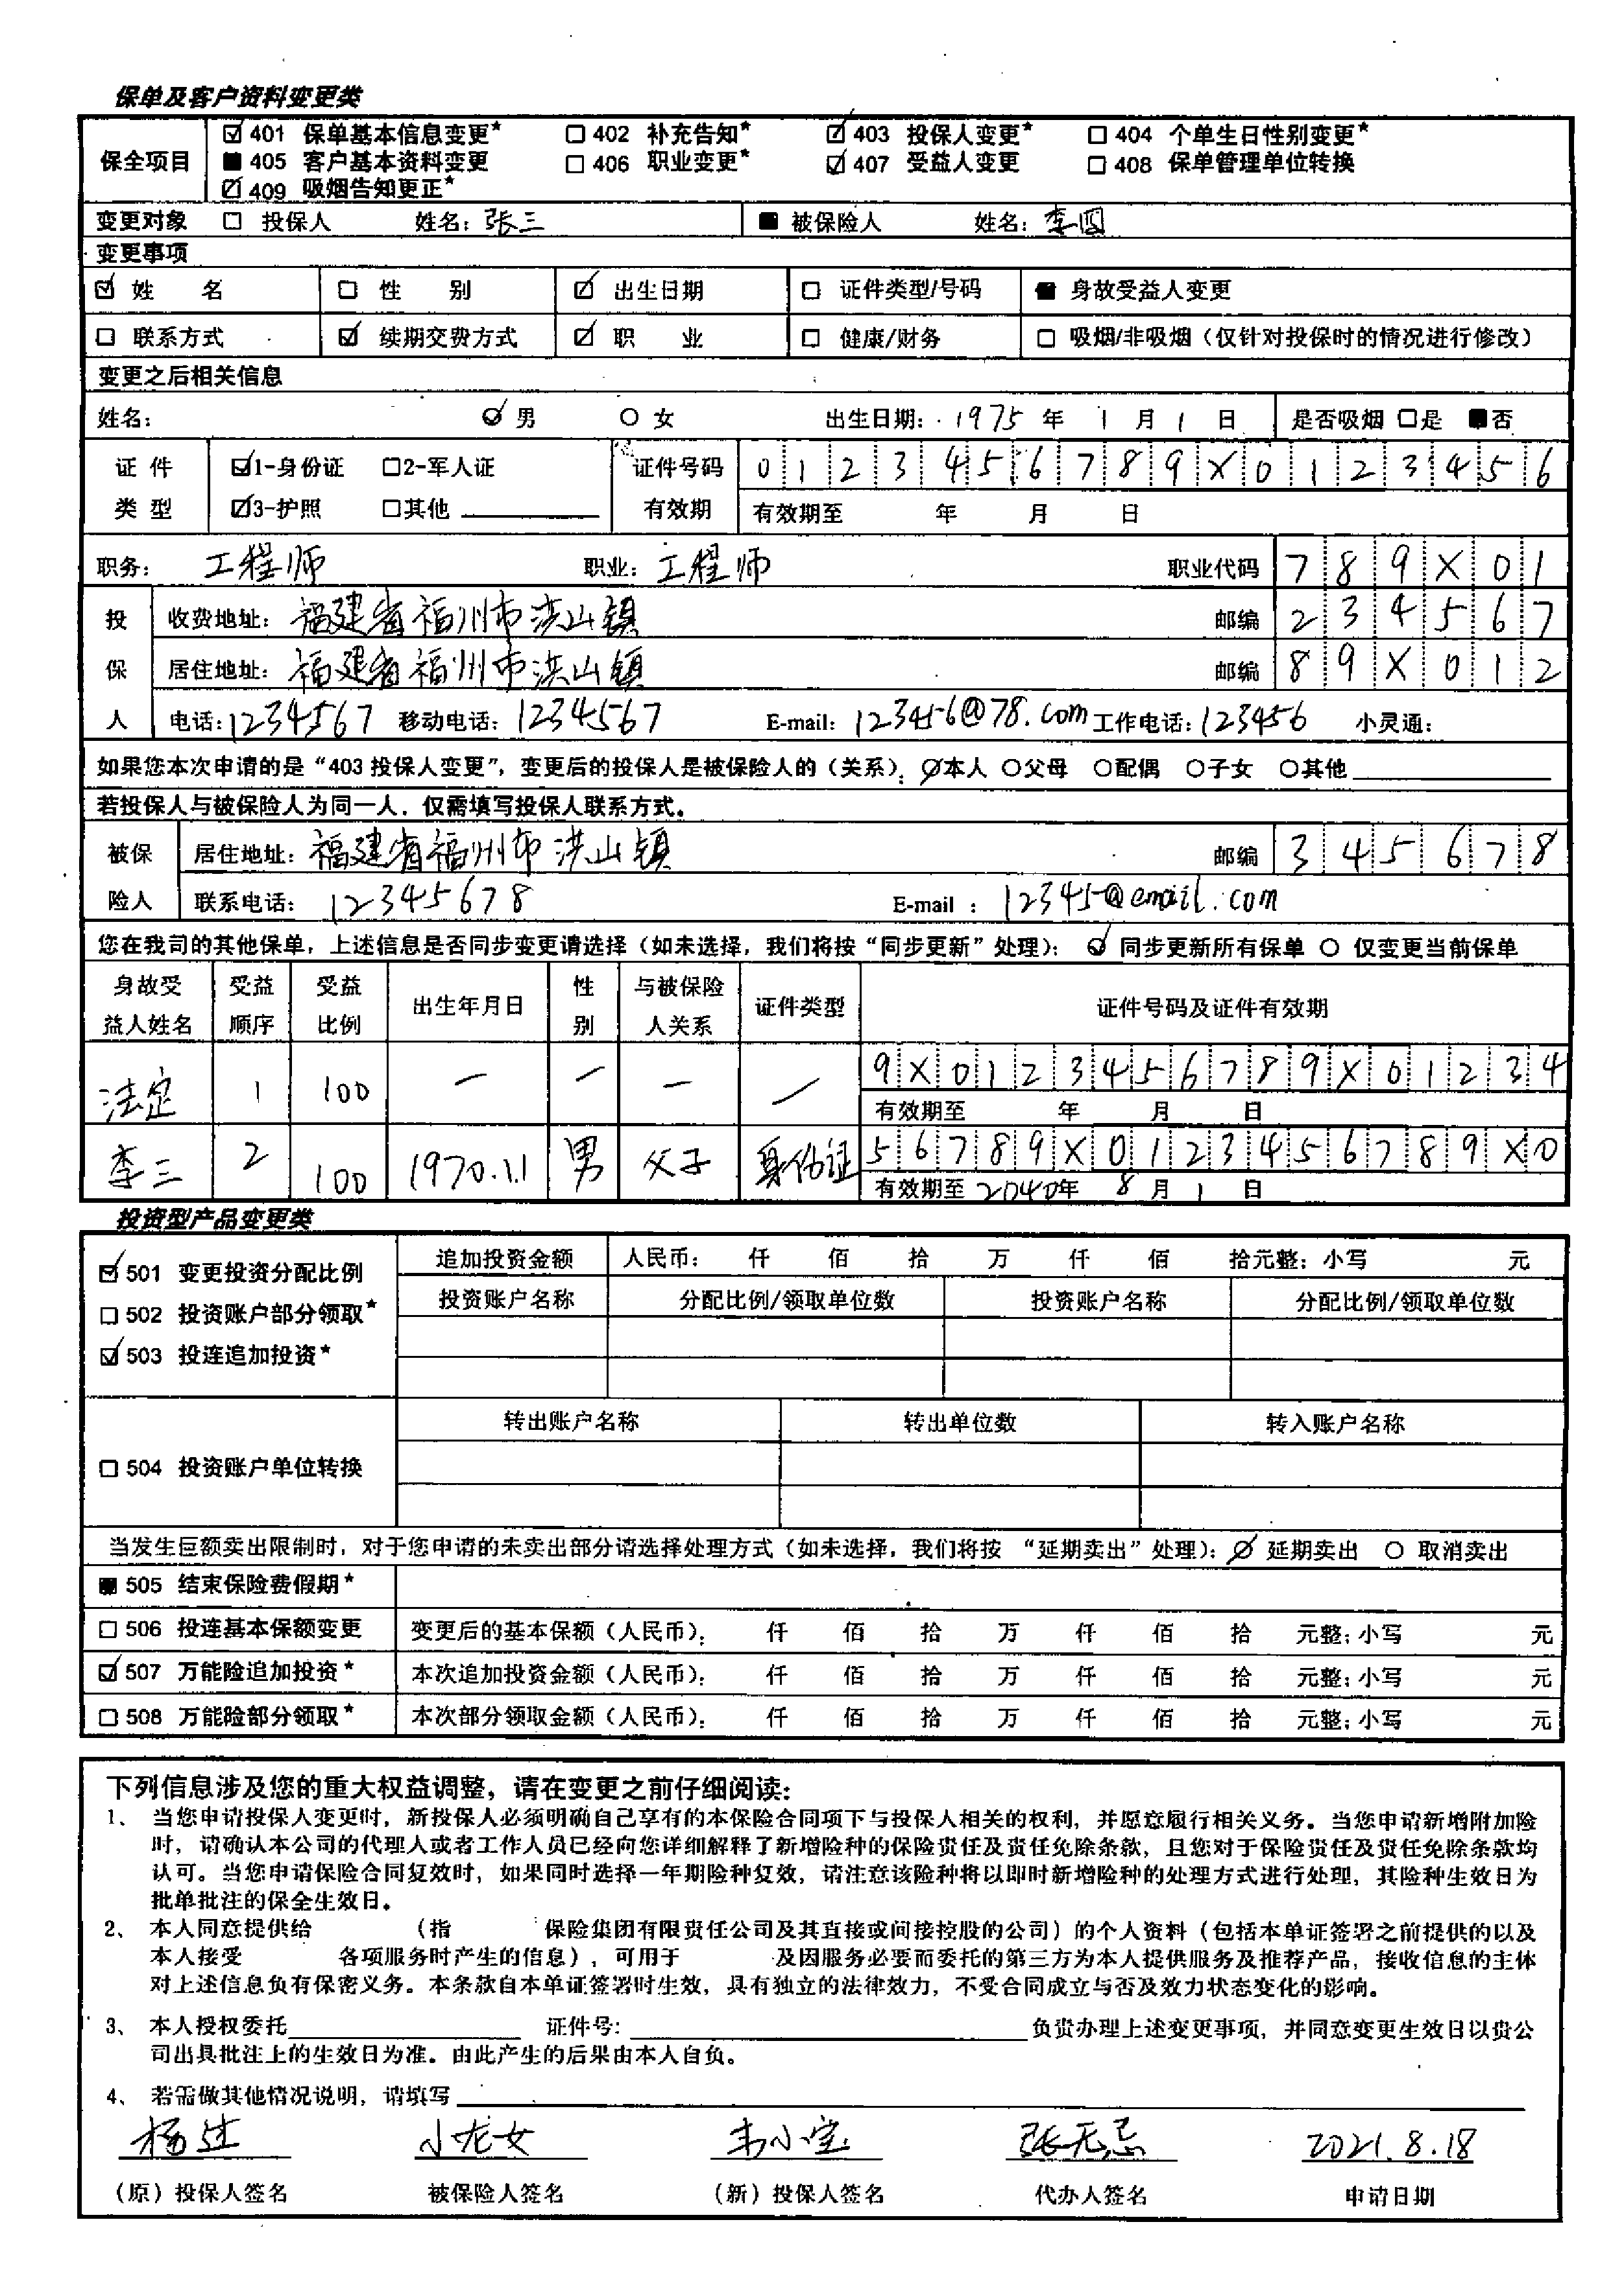 保单及客户资料变更类
保全项目 ☑401 保单基本信息变更* ☐402 补充告知* ☑403 投保人变更* ☐404 个单生日性别变更*
■405 客户基本资料变更 ☐406 职业变更* ☑407 受益人变更 ☐408 保单管理单位转换
☑409 吸烟告知更正*
变更对象 ☐ 投保人 姓名：张三 ■ 被保险人 姓名：李四
变更事项
☑ 姓 名 ☐ 性 别 ☑ 出生日期 ☐ 证件类型/号码 ■ 身故受益人变更
☐ 联系方式 ☑ 续期交费方式 ☑ 职 业 ☐ 健康/财务 ☐ 吸烟/非吸烟（仅针对投保时的情况进行修改）
变更之后相关信息
姓名： ☑ 男 ○ 女 出生日期：1975 年 1 月 1 日 是否吸烟 ☐是 ■否
证 件 ☑1-身份证 ☐2-军人证 证件号码 0 1 2 3 4 5 6 7 8 9 X 0 1 2 3 4 5 6
类 型 ☑3-护照 ☐其他 有效期 有效期至 年 月 日
职务： 工程师 职业：工程师 职业代码 7 8 9 X 0 1
投 收费地址：福建省福州市洪山镇 邮编 2 3 4 5 6 7
保 居住地址：福建省福州市洪山镇 邮编 8 9 X 0 1 2
人 电话：1234567 移动电话：1234567 E-mail：123456@78.com 工作电话：123456 小灵通：
如果您本次申请的是“403 投保人变更”，变更后的投保人是被保险人的（关系）：☑本人 ○父母 ○配偶 ○子女 ○其他
若投保人与被保险人为同一人，仅需填写投保人联系方式。
被保 居住地址：福建省福州市洪山镇 邮编 3 4 5 6 7 8
险人 联系电话：12345678 E-mail ：12345@email.com
您在我司的其他保单，上述信息是否同步变更请选择（如未选择，我们将按“同步更新”处理）：☑ 同步更新所有保单 ○ 仅变更当前保单
身故受益人姓名 受益顺序 受益比例 出生年月日 性别 与被保险人关系 证件类型 证件号码及证件有效期
法定 1 100 — — — — 9 X 0 1 2 3 4 5 6 7 8 9 X 0 1 2 3 4
有效期至 年 月 日
李三 2 100 1970.1.1 男 父子 身份证 5 6 7 8 9 X 0 1 2 3 4 5 6 7 8 9 X 0
有效期至 2040年 8 月 1 日
投资型产品变更类
☑501 变更投资分配比例 追加投资金额 人民币： 仟 佰 拾 万 仟 佰 拾元整；小写 元
☐502 投资账户部分领取* 投资账户名称 分配比例/领取单位数 投资账户名称 分配比例/领取单位数
☑503 投连追加投资*
转出账户名称 转出单位数 转入账户名称
☐504 投资账户单位转换
当发生巨额卖出限制时，对于您申请的未卖出部分请选择处理方式（如未选择，我们将按 “延期卖出”处理）：☑ 延期卖出 ○ 取消卖出
■505 结束保险费假期*
☐506 投连基本保额变更 变更后的基本保额（人民币）： 仟 佰 拾 万 仟 佰 拾 元整；小写 元
☑507 万能险追加投资* 本次追加投资金额（人民币）： 仟 佰 拾 万 仟 佰 拾 元整；小写 元
☐508 万能险部分领取* 本次部分领取金额（人民币）： 仟 佰 拾 万 仟 佰 拾 元整；小写 元
下列信息涉及您的重大权益调整，请在变更之前仔细阅读：
1、 当您申请投保人变更时，新投保人必须明确自己享有的本保险合同项下与投保人相关的权利，并愿意履行相关义务。当您申请新增附加险
时，请确认本公司的代理人或者工作人员已经向您详细解释了新增险种的保险责任及责任免除条款，且您对于保险责任及责任免除条款均
认可。当您申请保险合同复效时，如果同时选择一年期险种复效，请注意该险种将以即时新增险种的处理方式进行处理，其险种生效日为
批单批注的保全生效日。
2、 本人同意提供给 （指 保险集团有限责任公司及其直接或间接控股的公司）的个人资料（包括本单证签署之前提供的以及
本人接受 各项服务时产生的信息），可用于 及因服务必要而委托的第三方为本人提供服务及推荐产品，接收信息的主体
对上述信息负有保密义务。本条款自本单证签署时生效，具有独立的法律效力，不受合同成立与否及效力状态变化的影响。
3、 本人授权委托 证件号： 负责办理上述变更事项，并同意变更生效日以贵公
司出具批注上的生效日为准。由此产生的后果由本人自负。
4、 若需做其他情况说明，请填写
杨过 小龙女 韦小宝 张无忌 2021.8.18
（原）投保人签名 被保险人签名 （新）投保人签名 代办人签名 申请日期